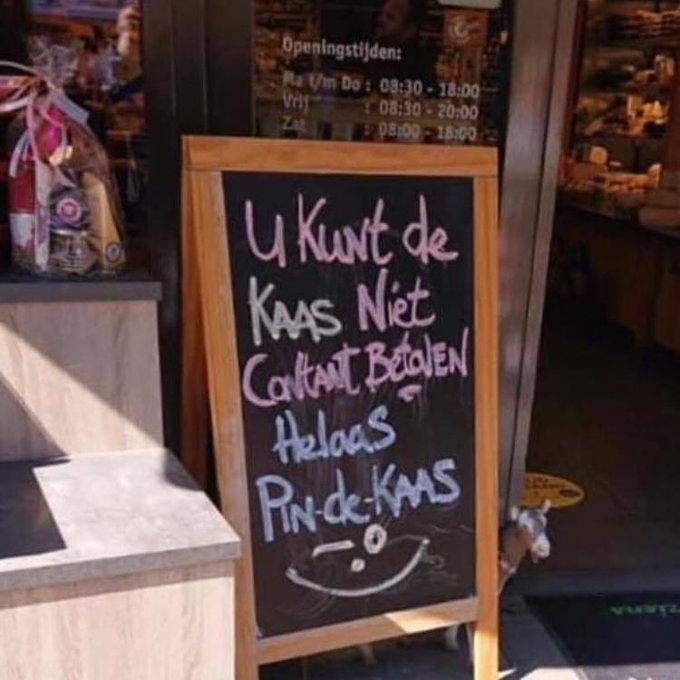 Openingstijden:
Ma t/m Do : 08:30 - 18:00
Vrij : 08:30 - 20:00
Zat : 08:00 - 18:00
U KUNT de
KAAS Niet
CONTANT BETALEN
HelaaS
PIN-de-KAAS